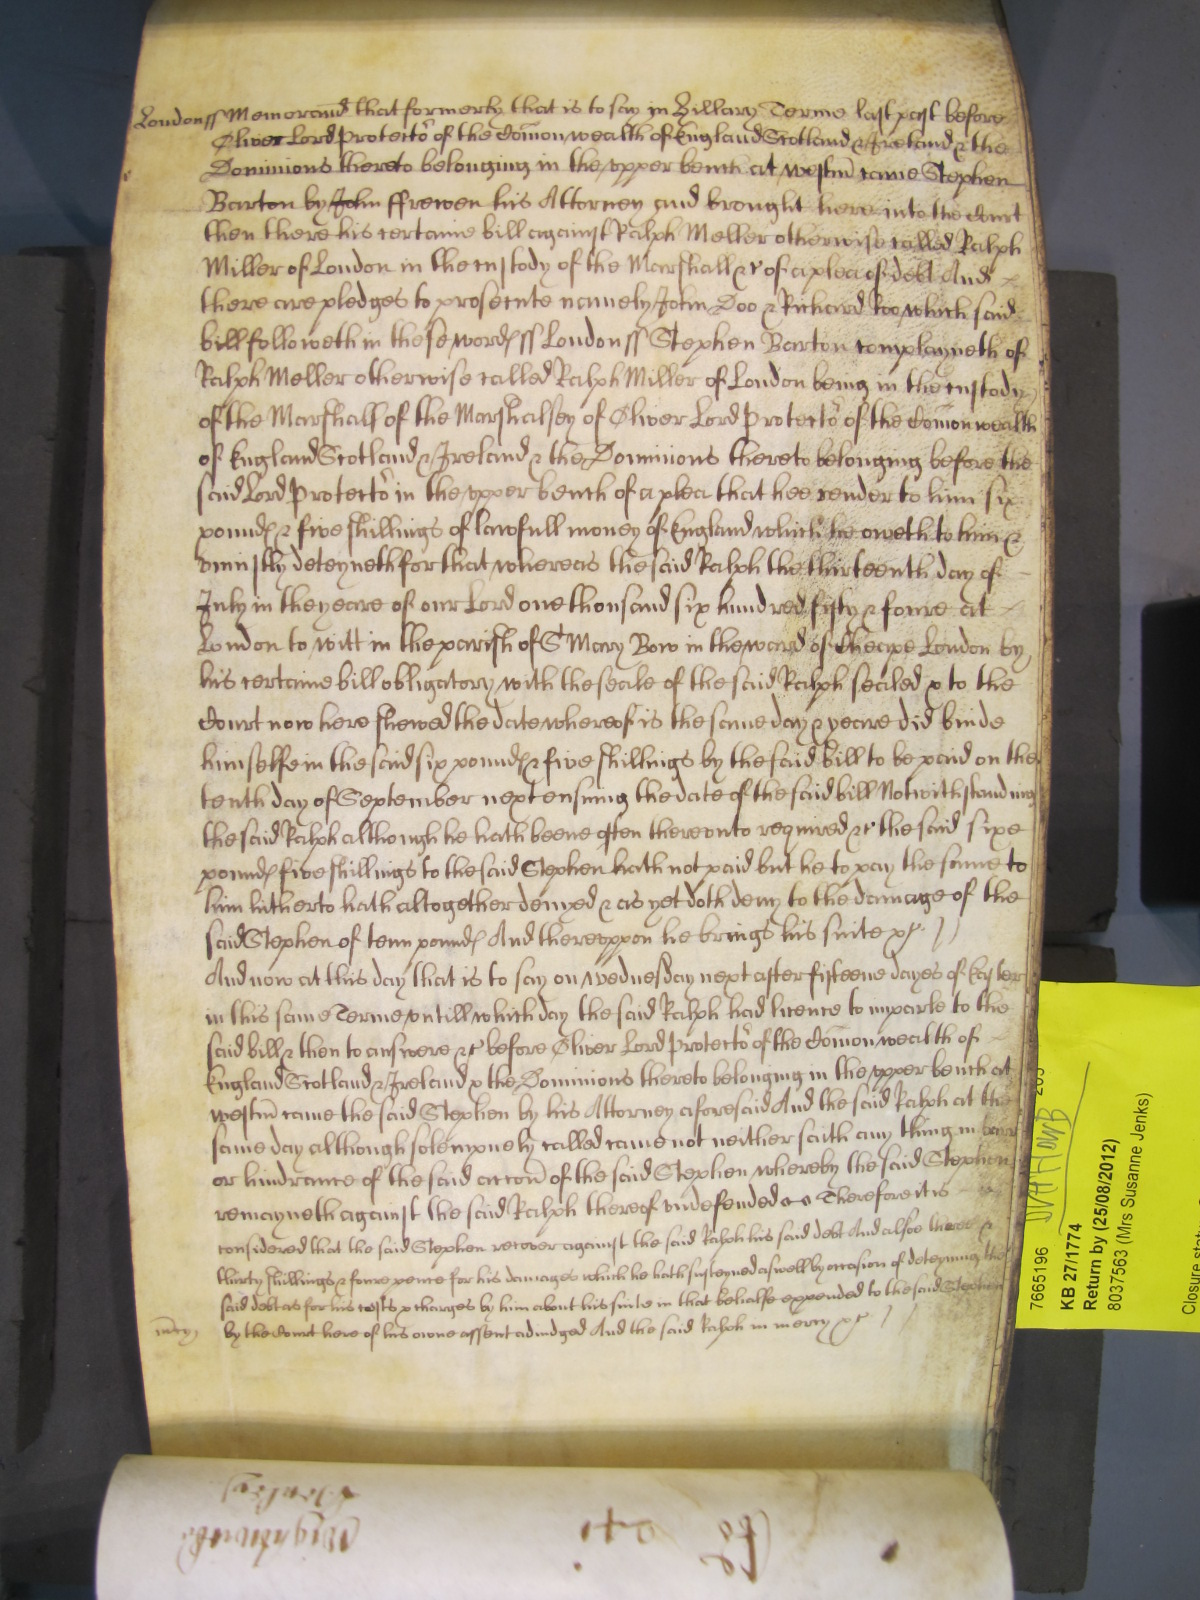 Londonss Memorand that formerly that is to say in Hillary Terme last past before
Oliver Lord Protector of the Comon wealth of England Scotland & Ireland & the
Dominions thereto belonging in the vpper bench at westm came Stephen
Barton by John ffrewen his Attorney and brought here into the Court
then there his certaine bill against Ralph Meller otherwise called Ralph
Miller of London in the custody of the Marshall &c of a plea of debt And
there are pledges to prosecute namely John Doo & Richard Roo which said
bill followeth in these words ss London ss Stephen Barton complayneth of
Ralph Meller otherwise called Ralph Miller of London being in the custody
of the Marshall of the Marshalsey of Oliver Lord Protector of the Comon wealth
of England Scotland & Ireland & the Dominions thereto belonging before the
said Lord Protector in the vpper bench of a plea that hee render to him six
pounds & five shillings of lawfull money of England which he oweth to him &
vniustly deteyneth for that whereas the said Ralph the thirteenth day of
July in the yeare of our Lord one thousand six hundred fifty & foure at
London to witt in the parish of St Mary Bow in the ward of Cheape London by
his certaine bill obligatory with the seale of the said Ralph sealed & to the
Court now here shewed the date whereof is the same day & yeare did binde
himselfe in the said six pounds & five shillings by the said bill to be paid on the
tenth day of September next ensuing the date of the said bill Notwithstanding
the said Ralph although he hath beene often therevnto required &c the said sixe
pounds five shillings to the said Stephen hath not paid but he to pay the same to
him hitherto hath altogether denyed & as yet doth deny to the damage of the
said Stephen of tenn pounds And therevppon he brings his suite &c
And now at this day that is to say on wednesday next after fifteene dayes of Easter
in this same Terme vntill which day the said Ralph had licence to imparle to the
said bill & then to answere &c before Oliver Lord Protector of the Comon wealth of
England Scotland & Ireland & the Dominions thereto belonging in the vpper bench at
westm came the said Stephen by his Attorney aforesaid And the said Ralph at the
same day although solempnely called came not neither saith any thing in barr
or hindrance of the said accon of the said Stephen whereby the said Stephen
remayneth against the said Ralph thereof vndefended &c Therefore it is
considered that the said Stephen recover against the said Ralph his said debt And alsoe three &
thirty shillings & foure pence for his damages which he hath susteyned aswell by occasion of deteyning the
said debt as for his costs & charges by him about his suite in that behalfe expended to the said Stephen
mcy by the Court here of his owne assent adiudged And the said Ralph in mercy &c
7665196
KB 27/1774
Return by (25/08/2012)
8037563 (Mrs Susanne Jenks)